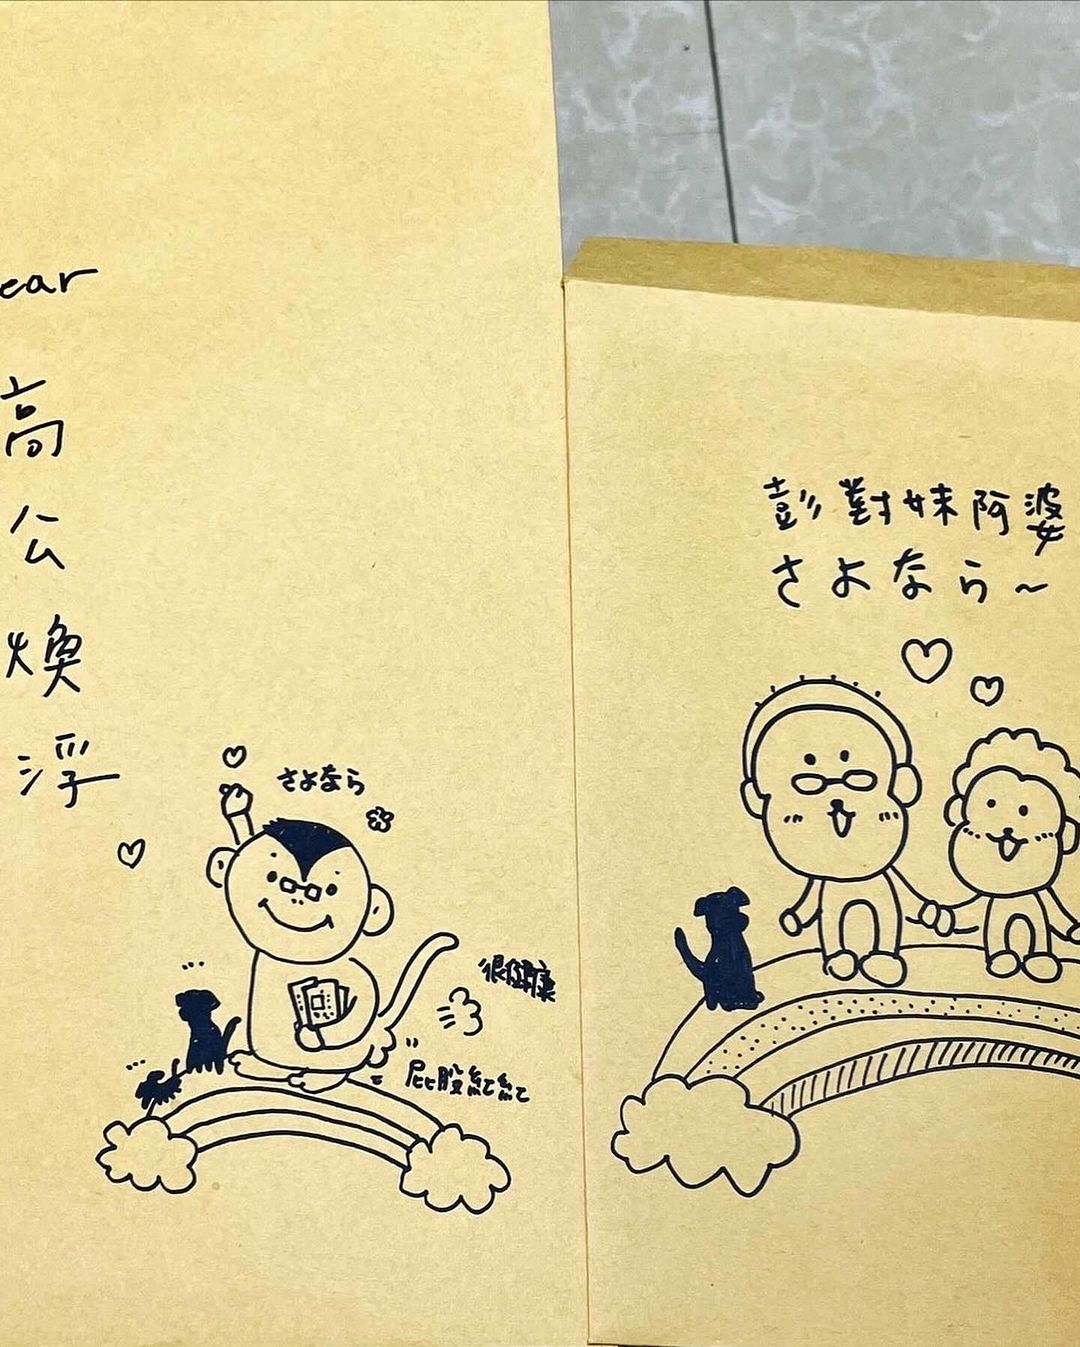 ear
高公煥浮
さよなら
很健康
屁股紅紅
彭對妹阿婆
さよなら~